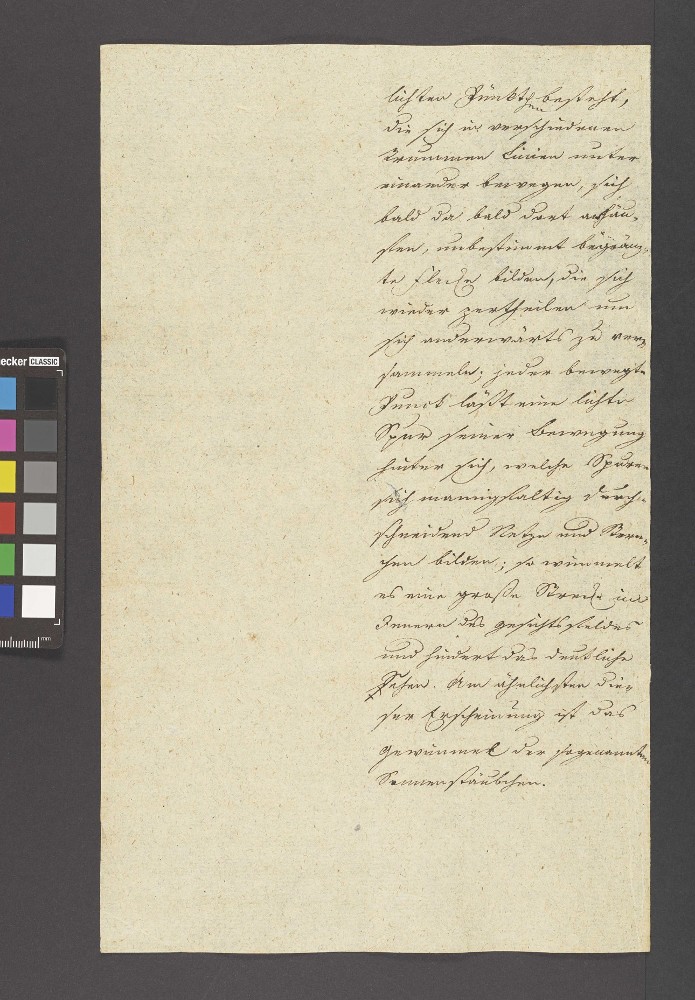 lichten Pünktchen besteht,
die sich in verschiedenen
krummen Linien unter
einander bewegen, sich
bald da bald dort anhäu-
fen, unbestimmt begränz-
te Flecke bilden, die sich
wieder zertheilen um
sich anderwärts zu ver-
sammeln; jeder bewegte
Punct läßt eine lichte
Spur seiner Bewegung
hinter sich, welche Spuren
sich mannigfaltig durch-
schneidend Netze und Stern-
chen bilden; so wimmelt
es eine große Strecke im
Innern des Gesichtsfeldes
und hindert das deutliche
Sehen. Am ähnlichsten die-
ser Erscheinung ist das
Gewimmel der sogenannten
Sonnenstäubchen.
ecker CLASSIC
mm